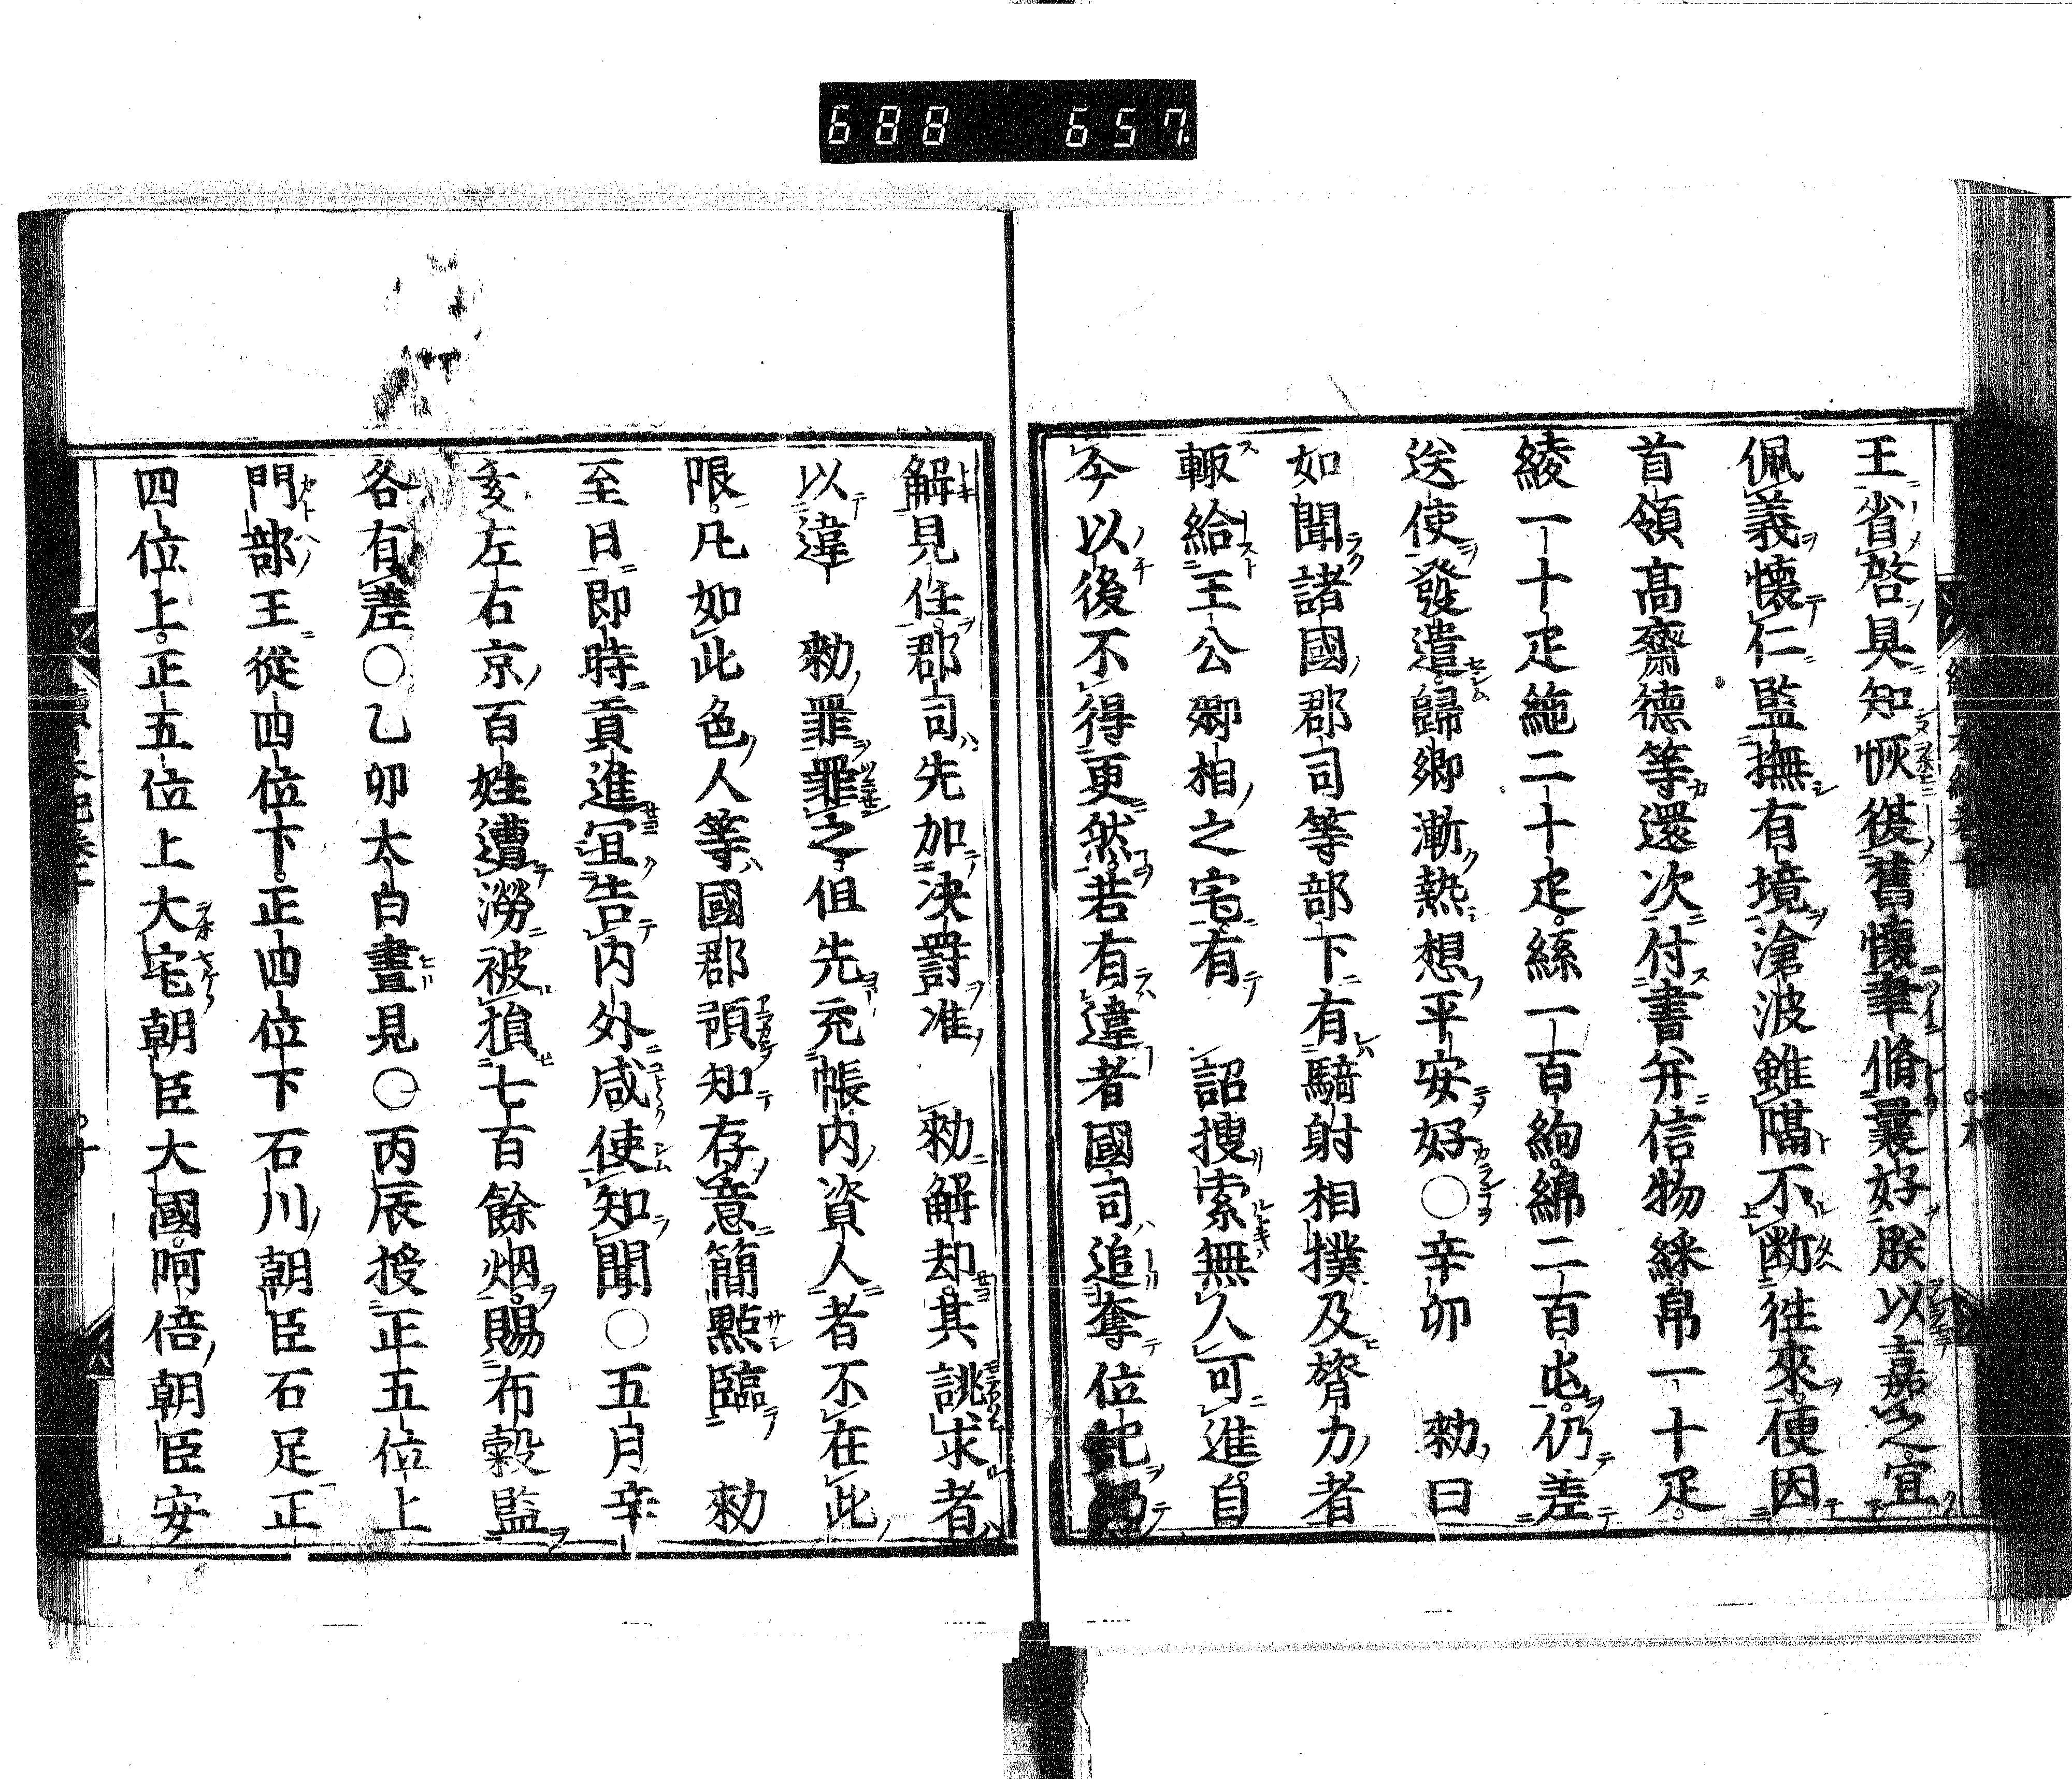 688 657
王省啓具知恢復舊懷聿脩曩好朕以嘉之宜
佩義懷仁監撫有境滄波雖隔不断徃來便因
首領髙齋德等還次付書并信物綵帛一十疋
綾一十疋絁二十疋絲一百絇綿二百屯仍差
送使發遣歸郷漸熱想平安好〇辛卯 勑曰
如聞諸國郡司等部下有騎射相撲及膂力者
輙給王公卿相之宅有 詔搜索無人可進自
今以後不得更然若有違者國司追奪位記仍
解見任郡司先加决罸准 勑解却其誂求者
以違 勑罪罪之但先充帳内資人者不在此
限凡如此色人等國郡預知存意簡點臨 勑
至日即時貢進宜告内外咸使知聞〇五月辛
亥左右京百姓遭澇被損七百餘烟賜布穀監
各有差〇乙卯太白晝見〇丙辰授正五位上
門部王從四位下正四位下石川朝臣石足正
四位上正五位上大宅朝臣大國阿倍朝臣安